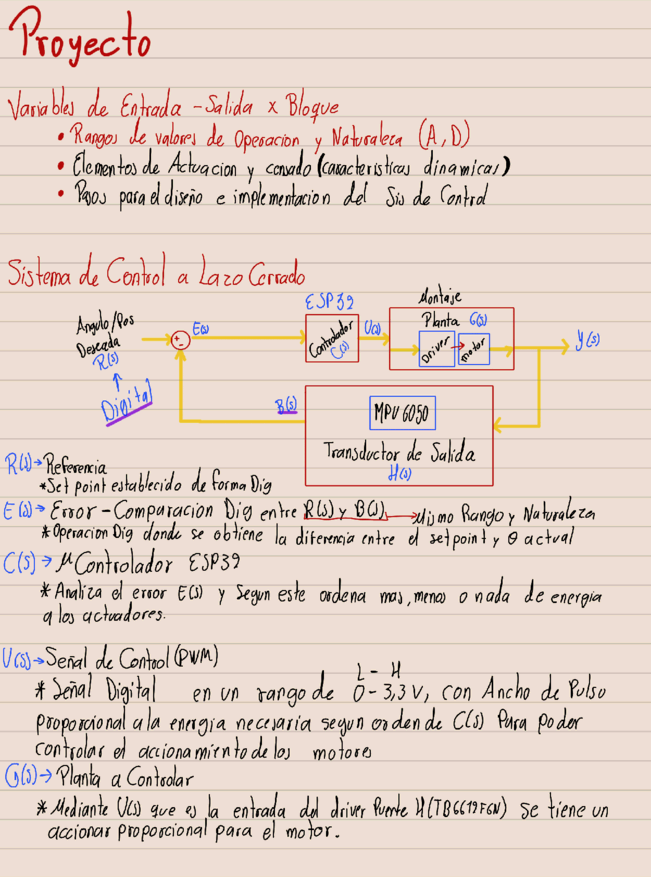 Proyecto
Variables de Entrada - Salida x Bloque
• Rangos de valores de Operacion y Naturaleza (A, D)
• Elementos de Actuacion y censado (caracteristicas dinamicas)
• Pasos para el diseño e implementacion del Sis de Control
Sistema de Control a Lazo Cerrado
Angulo/Pos
Deseada
R(s)
Digital
+
-
E(s)
ESP32
Controlador
C(s)
U(s)
Montaje
Planta G(s)
Driver
motor
Y(s)
B(s)
MPU 6050
Transductor de Salida
H(s)
R(s) → Referencia
*Set point establecido de forma Dig
E(s) → Error - Comparacion Dig entre R(s) y B(s) → Mismo Rango y Naturaleza
* Operacion Dig donde se obtiene la diferencia entre el setpoint y θ actual
C(s) → μControlador ESP32
* Analiza el error E(s) y segun este ordena mas, menos o nada de energia
a los actuadores.
U(s) → Señal de Control (PWM)
L - H
* Señal Digital en un rango de 0 - 3,3 V, con Ancho de Pulso
proporcional a la energia necesaria segun orden de C(s) Para poder
controlar el accionamiento de los motores
G(s) → Planta a Controlar
* Mediante U(s) que es la entrada del driver Puente H (TB6619FGN) se tiene un
accionar proporcional para el motor.